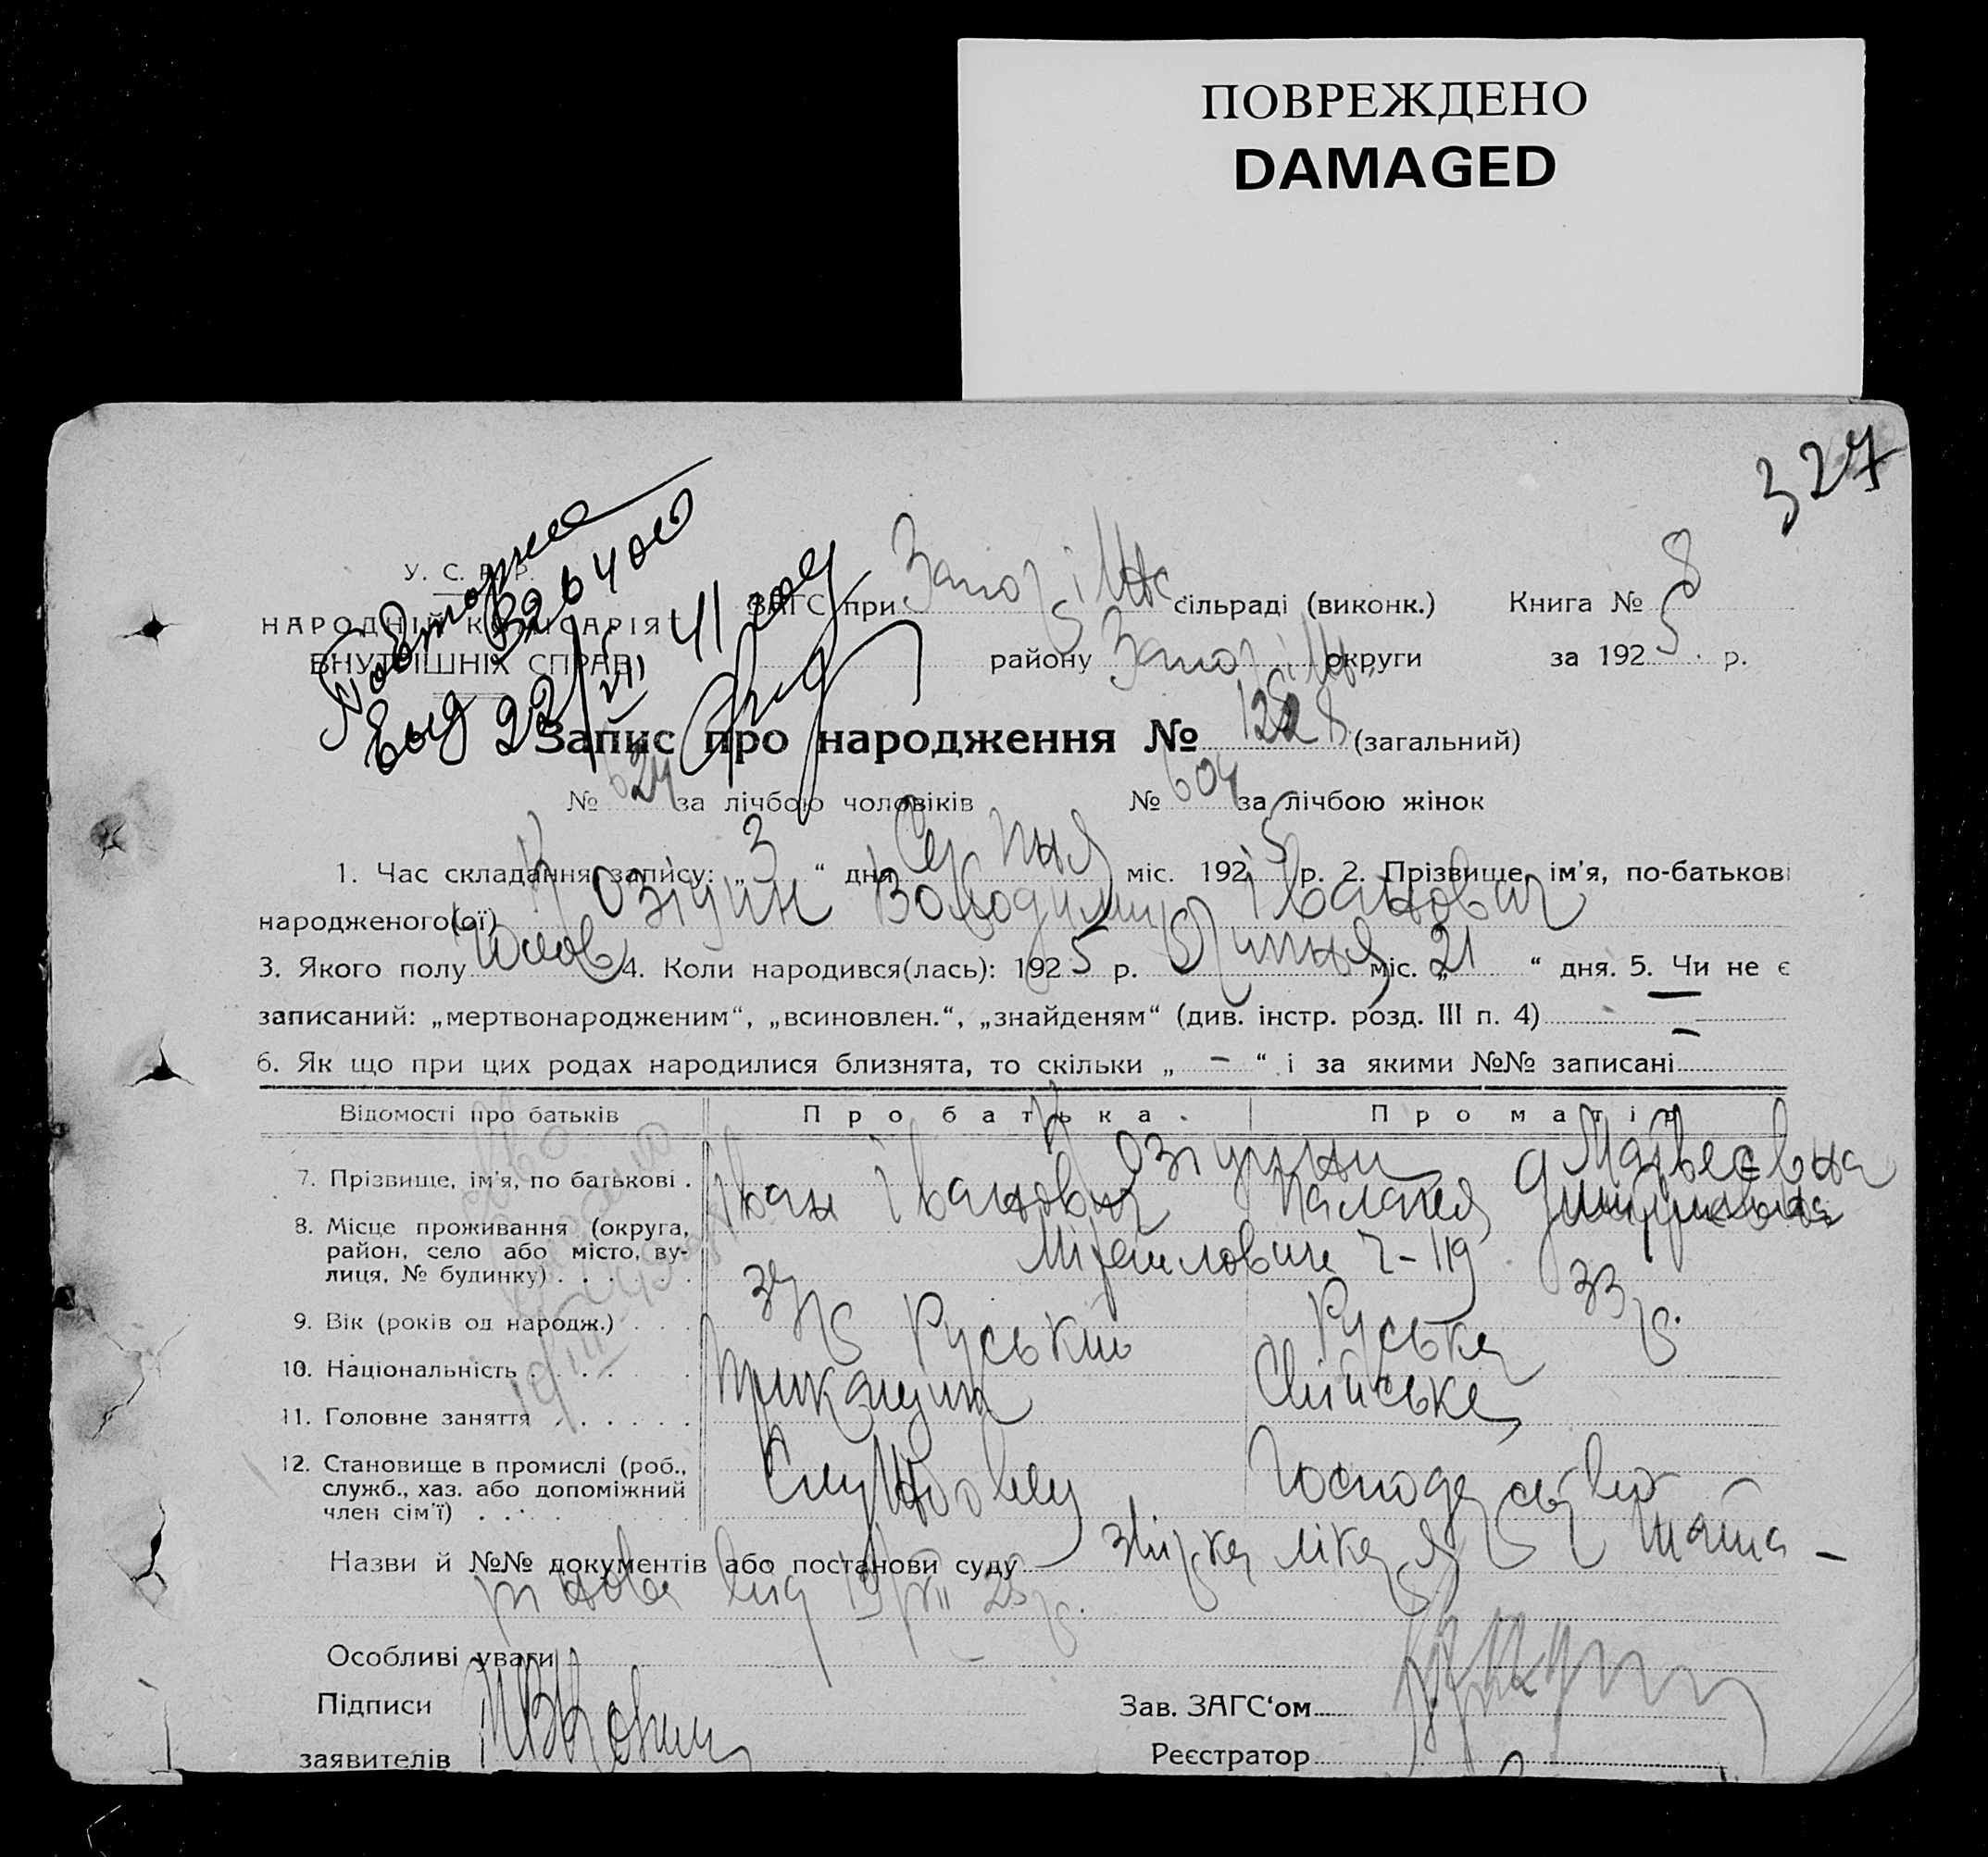 ПОВРЕЖДЕНО
DAMAGED
327
У. С. Р. Р.
НАРОДНІЙ КОМІСАРІЯТ
ВНУТРІШНІХ СПРАВ
Повторное
выд 22/VII 41 год
ЗАГС при Запоріжс сільраді (виконк.) Книга № 8
району Запоріж округи за 1925 р.
Запис про народження № 1228 (загальний)
№ 624 за лічбою чоловіків № 604 за лічбою жінок
1. Час складання запису: „3“ дня Серпня міс. 1925 р. 2. Прізвище, ім'я, по-батькові
народженого(ої) Козіцин Володимир Іванович
3. Якого полу Чолов 4. Коли народився(лась): 1925 р. Липня міс. „21“ дня. 5. Чи не є
записаний: „мертвонародженим“, „всиновлен.“, „знайденям“ (див. інстр. розд. III п. 4) –
6. Як що при цих родах народилися близнята, то скільки „ – “ і за якими №№ записані –
Відомості про батьків Про батька. Про матір
7. Прізвище, ім'я, по батькові . Козіцини Матвеевна
Іван Іванович Палагея
8. Місце проживання (округа, район, село або місто, вулиця, № будинку) . . . . . Міхайлович 119
9. Вік (років од народж.) . . . 34 р 33 р.
10. Національність . . . . . . Руський Руська
11. Головне заняття . . . . . . Прикащик Хлійське
12. Становище в промислі (роб., служб., хаз. або допоміжний член сім'ї) . . . Службовец Господарство
Назви й №№ документів або постанови суду Звірка лікаря
від 19/VII 25 р.
Особливі уваги
Підписи
заявителів
Зав. ЗАГС'ом
Реєстратор